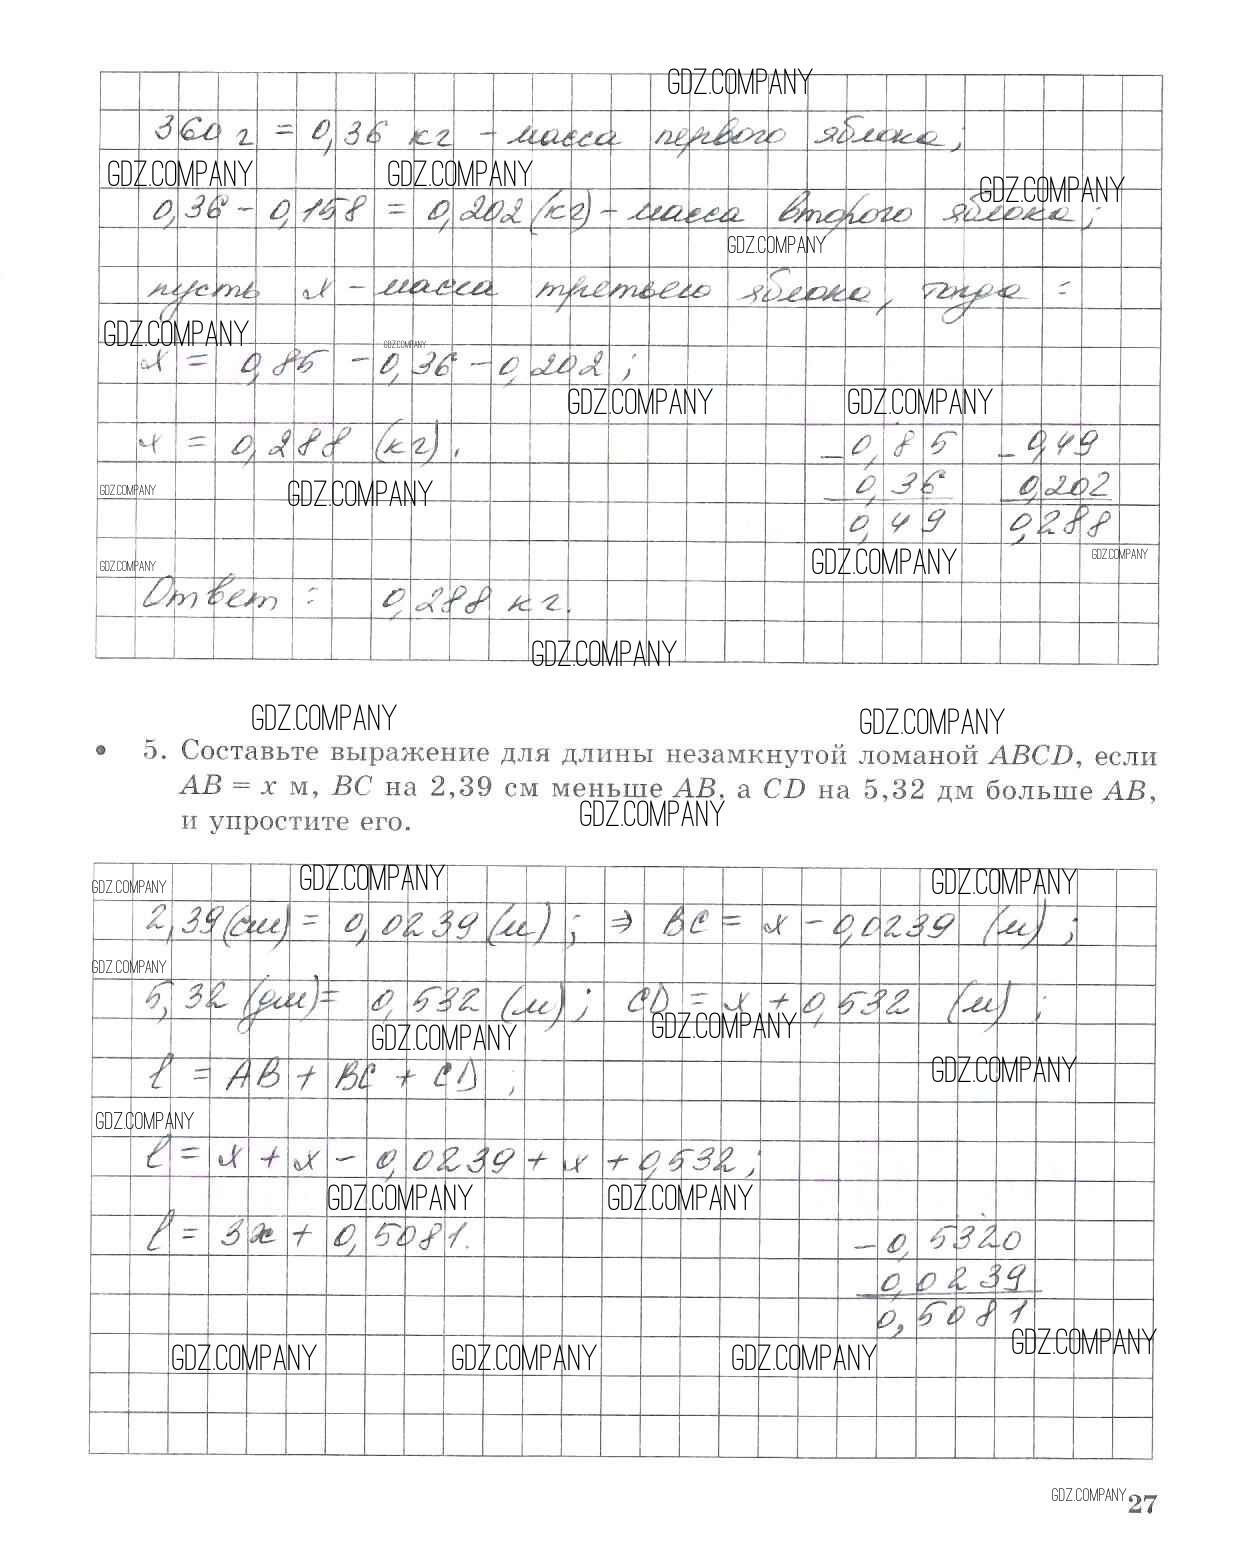 GDZ.COMPANY
360 г = 0,36 кг - масса первого яблока;
GDZ.COMPANY GDZ.COMPANY GDZ.COMPANY
0,36 - 0,158 = 0,202 (кг) - масса второго яблока;
GDZ.COMPANY
пусть х - масса третьего яблока, тогда :
GDZ.COMPANY GDZ.COMPANY
х = 0,85 - 0,36 - 0,202 ;
GDZ.COMPANY GDZ.COMPANY
х = 0,288 (кг). - 0,85 - 0,49
GDZ.COMPANY GDZ.COMPANY 0,36 0,202
0,49 0,288
GDZ.COMPANY GDZ.COMPANY GDZ.COMPANY
Ответ : 0,288 кг.
GDZ.COMPANY
GDZ.COMPANY GDZ.COMPANY
• 5. Составьте выражение для длины незамкнутой ломаной ABCD, если
AB = x м, BC на 2,39 см меньше AB, а CD на 5,32 дм больше AB,
и упростите его.
GDZ.COMPANY
GDZ.COMPANY GDZ.COMPANY GDZ.COMPANY
2,39 (см) = 0,0239 (м) ; ⇒ BC = x - 0,0239 (м) ;
GDZ.COMPANY
5,32 (дм) = 0,532 (м) ; CD = x + 0,532 (м) ;
GDZ.COMPANY GDZ.COMPANY
l = AB + BC + CD ;
GDZ.COMPANY
GDZ.COMPANY
l = x + x - 0,0239 + x + 0,532 ;
GDZ.COMPANY GDZ.COMPANY
l = 3x + 0,5081. - 0,5320
0,0239
0,5081
GDZ.COMPANY GDZ.COMPANY GDZ.COMPANY GDZ.COMPANY
GDZ.COMPANY 27